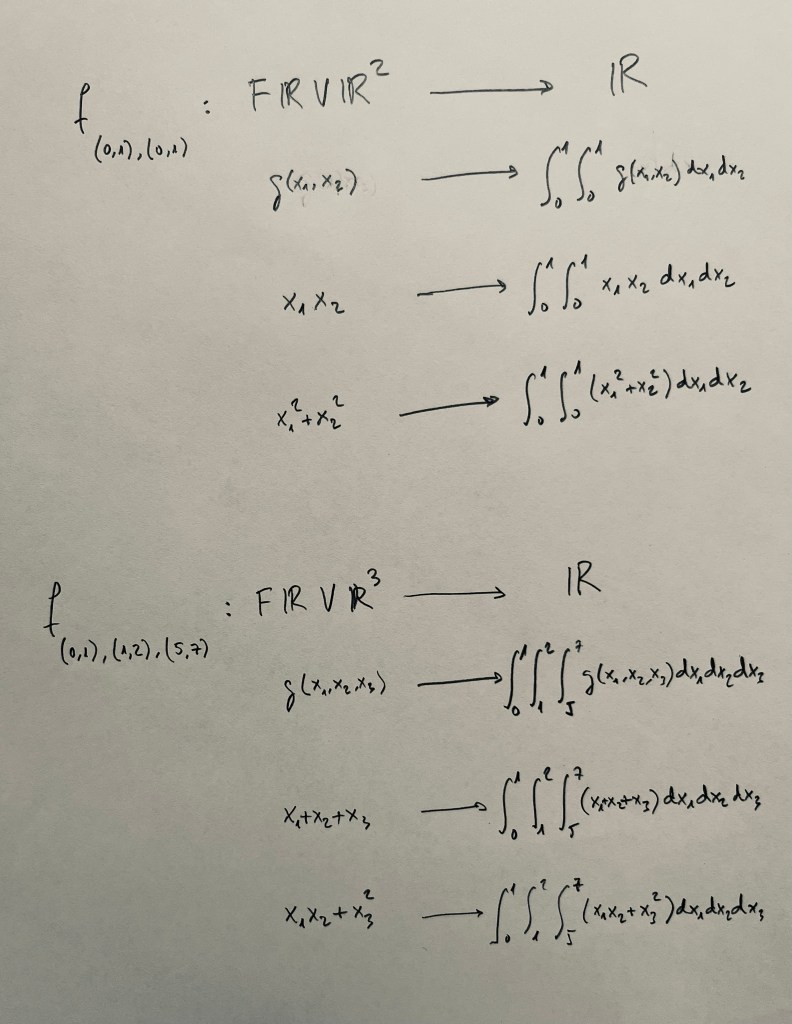 f_{(0,1),(0,1)} : FℝVℝ² ⟶ ℝ
g(x₁,x₂) ⟶ ∫₀¹ ∫₀¹ g(x₁,x₂) dx₁dx₂
x₁x₂ ⟶ ∫₀¹ ∫₀¹ x₁x₂ dx₁dx₂
x₁²+x₂² ⟶ ∫₀¹ ∫₀¹ (x₁²+x₂²) dx₁dx₂
f_{(0,1),(1,2),(5,7)} : FℝVℝ³ ⟶ ℝ
g(x₁,x₂,x₃) ⟶ ∫₀¹ ∫₁² ∫₅⁷ g(x₁,x₂,x₃) dx₁dx₂dx₃
x₁+x₂+x₃ ⟶ ∫₀¹ ∫₁² ∫₅⁷ (x₁+x₂+x₃) dx₁dx₂dx₃
x₁x₂+x₃² ⟶ ∫₀¹ ∫₁² ∫₅⁷ (x₁x₂+x₃²) dx₁dx₂dx₃